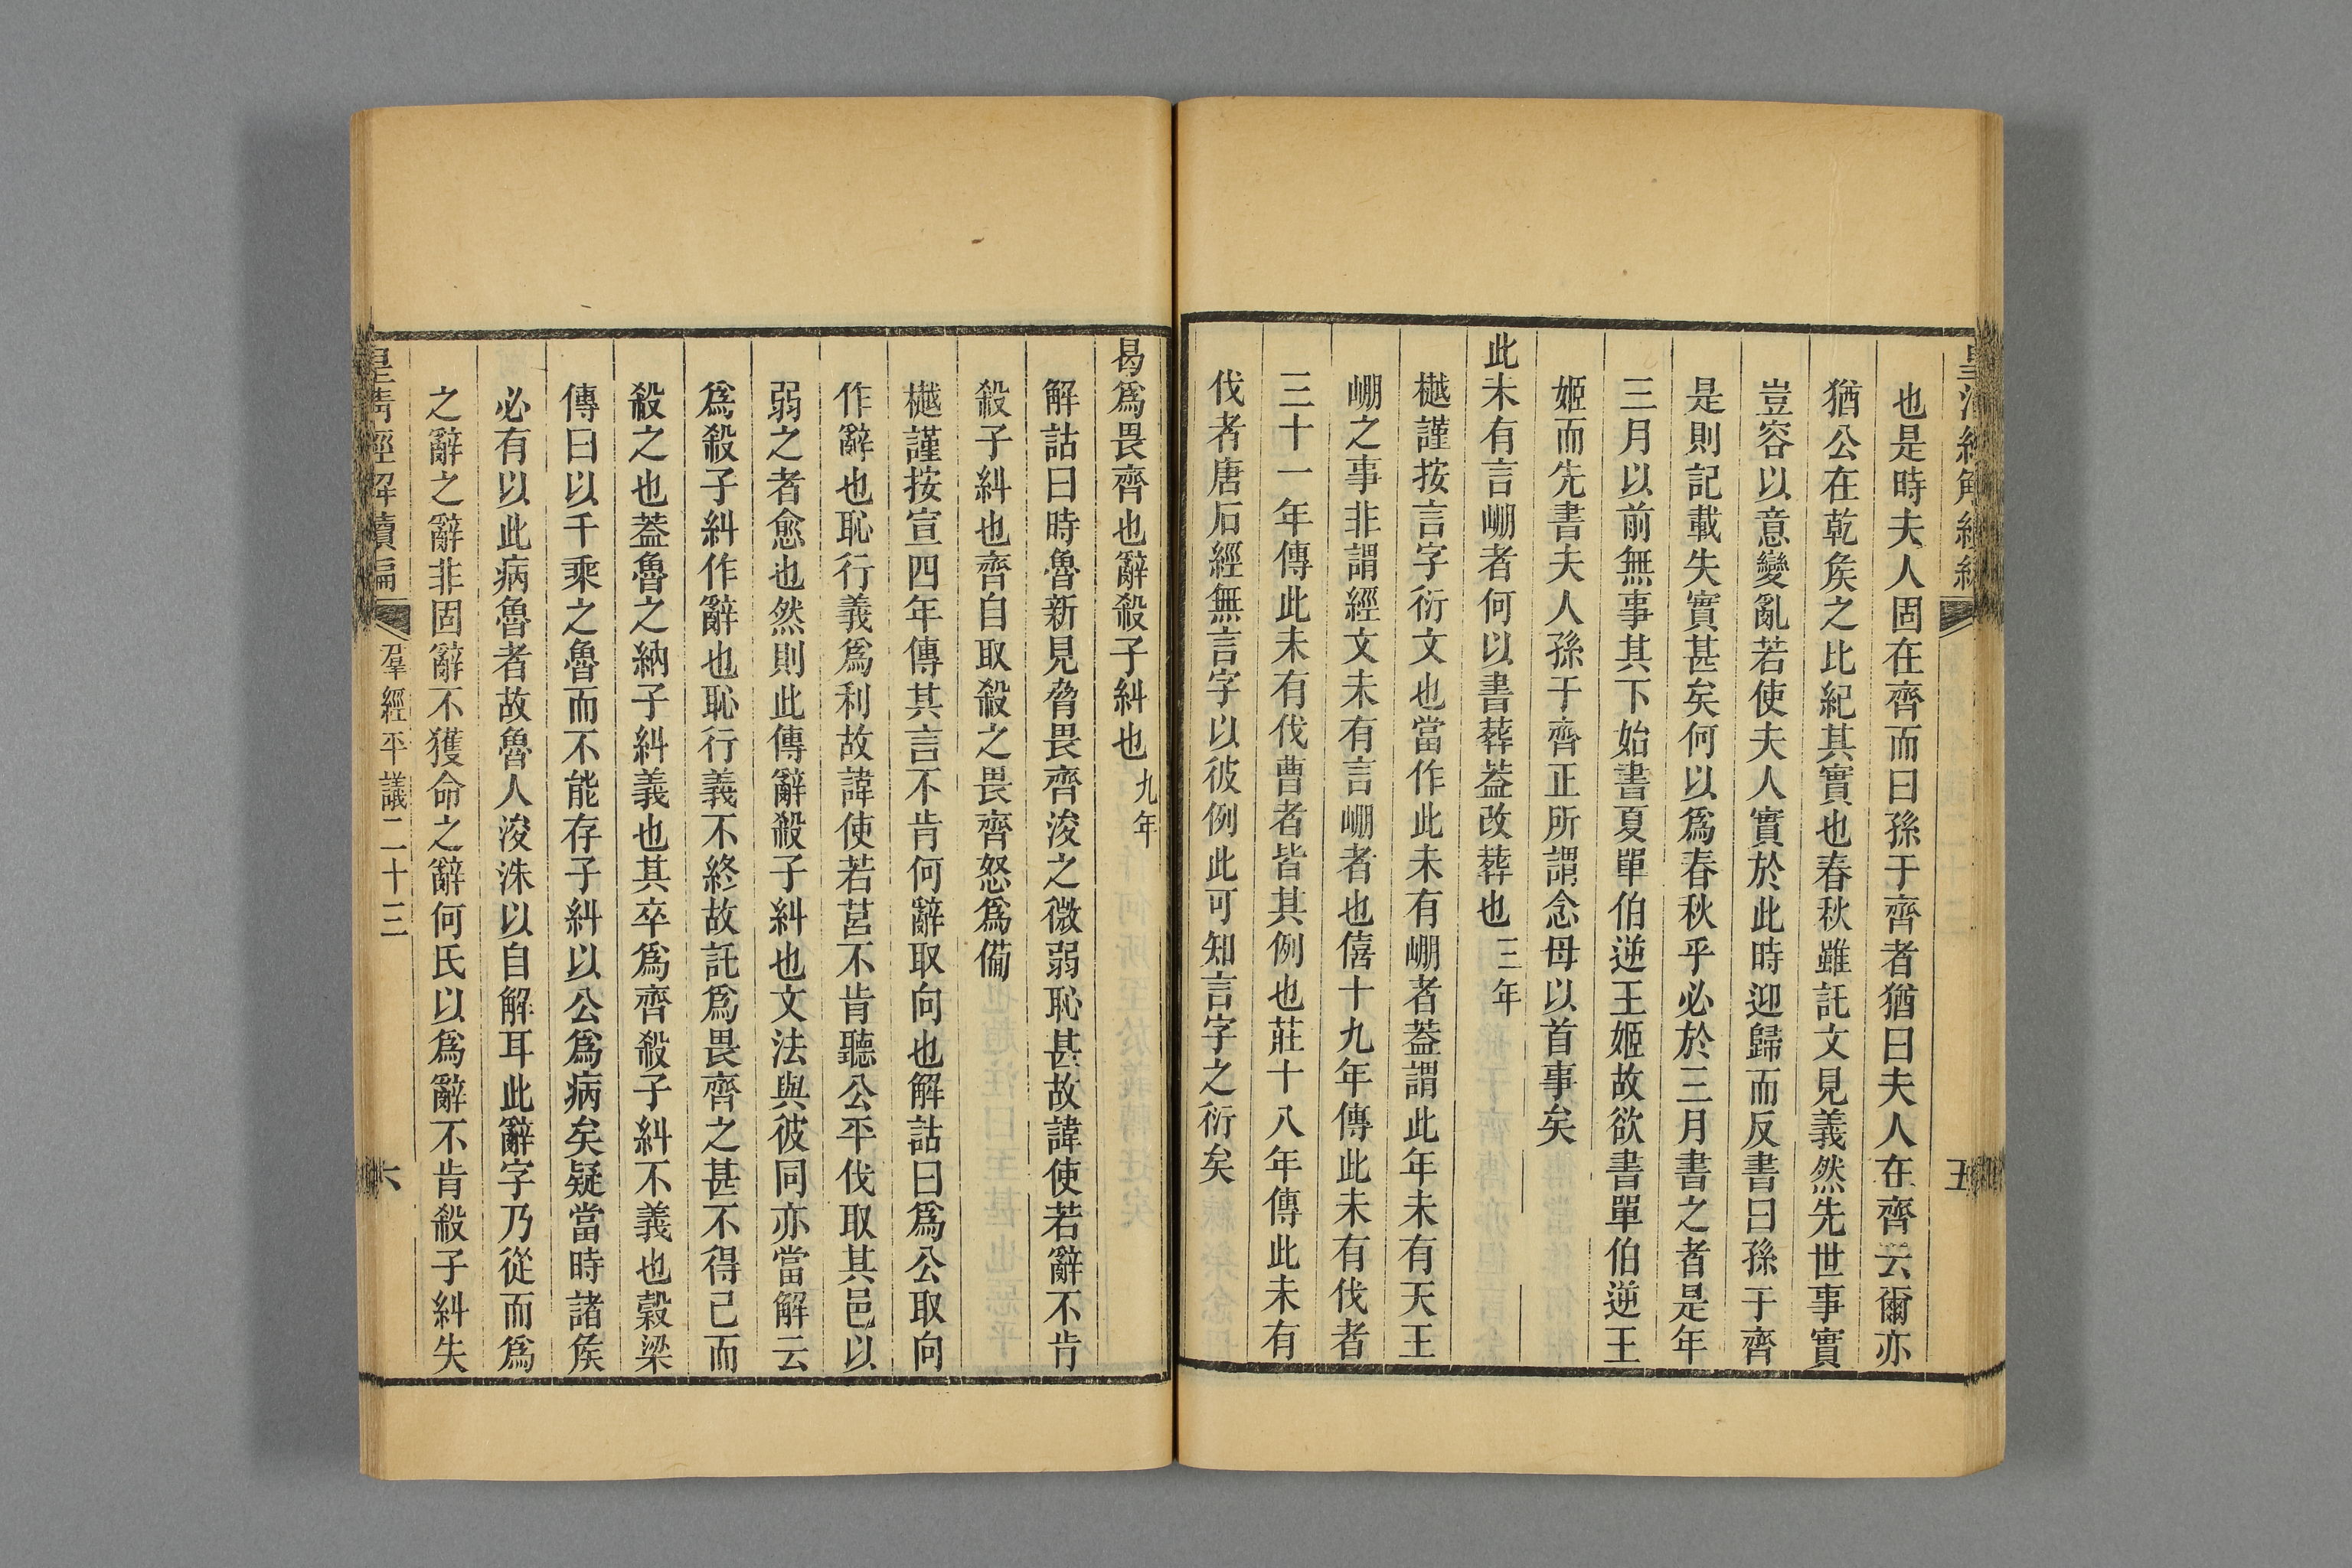 五
也是時夫人固在齊而曰孫于齊者猶曰夫人在齊云爾亦
猶公在乾矦之比紀其實也春秋雖託文見義然先世事實
豈容以意變亂若使夫人實於此時迎歸而反書曰孫于齊
是則記載失實甚矣何以爲春秋乎必於三月書之者是年
三月以前無事其下始書夏單伯逆王姬故欲書單伯逆王
姬而先書夫人孫于齊正所謂念母以首事矣
此未有言崩者何以書葬葢改葬也三年
樾謹按言字衍文也當作此未有崩者葢謂此年未有天王
崩之事非謂經文未有言崩者也僖十九年傳此未有伐者
三十一年傳此未有伐曹者皆其例也莊十八年傳此未有
伐者唐石經無言字以彼例此可知言字之衍矣
曷爲畏齊也辭殺子糾也九年
解詁曰時魯新見脅畏齊浚之微弱恥甚故諱使若辭不肯
殺子糾也齊自取殺之畏齊怒爲備
樾謹按宣四年傳其言不肯何辭取向也解詁曰爲公取向
作辭也恥行義爲利故諱使若莒不肯聽公平伐取其邑以
弱之者愈也然則此傳辭殺子糾也文法與彼同亦當解云
爲殺子糾作辭也恥行義不終故託爲畏齊之甚不得已而
殺之也葢魯之納子糾義也其卒爲齊殺子糾不義也穀梁
傳曰以千乘之魯而不能存子糾以公爲病矣疑當時諸矦
必有以此病魯者故魯人浚洙以自解耳此辭字乃從而爲
之辭之辭非固辭不獲命之辭何氏以爲辭不肯殺子糾失
皇清經解續編 羣經平議二十三 六